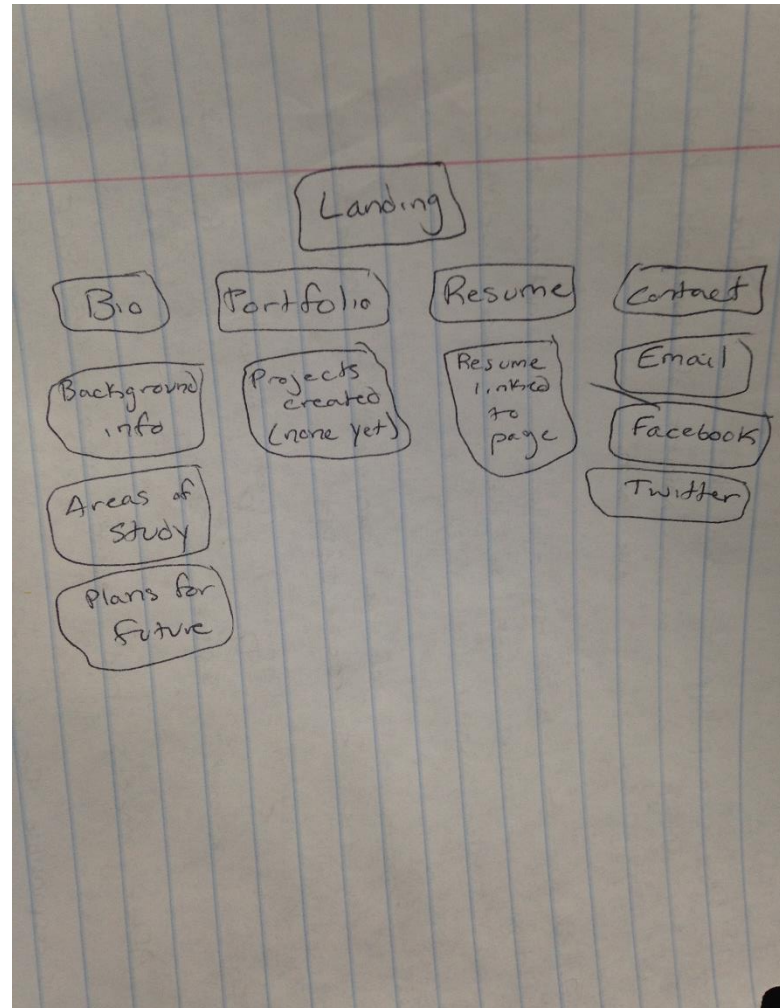 Landing
Bio
Portfolio
Resume
Contact
Background
info
Areas of
Study
Plans for
future
Projects
created
(none yet)
Resume
linked
to
page
Email
Facebook
Twitter